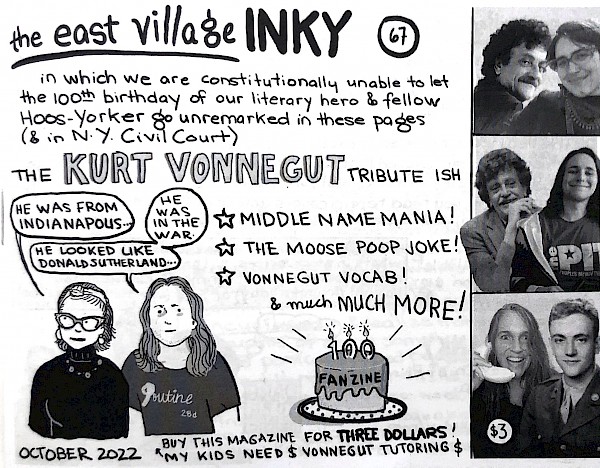 the east village INKY 67
in which we are constitutionally unable to let
the 100th birthday of our literary hero & fellow
Hoos-Yorker go unremarked in these pages
(& in N.Y. Civil Court)
THE KURT VONNEGUT TRIBUTE ISH
HE WAS FROM
INDIANAPOLIS...
HE
WAS
IN THE
WAR.
HE LOOKED LIKE
DONALD SUTHERLAND...
☆ MIDDLE NAME MANIA!
☆ THE MOOSE POOP JOKE!
☆ VONNEGUT VOCAB!
& much MUCH MORE!
100
FANZINE
Poutine
28d
the PIT
$3
OCTOBER 2022
BUY THIS MAGAZINE FOR THREE DOLLARS!
*MY KIDS NEED $ VONNEGUT TUTORING $